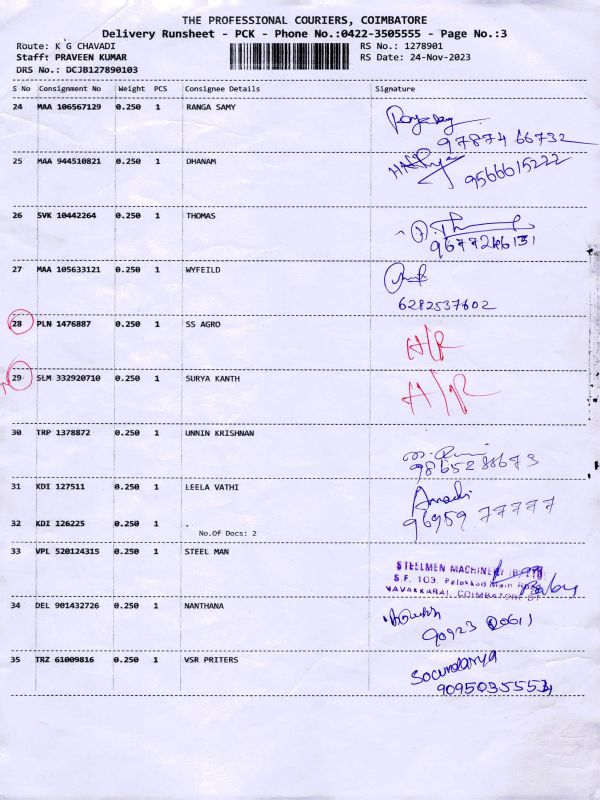 THE PROFESSIONAL COURIERS, COIMBATORE
Delivery Runsheet - PCK - Phone No.:0422-3505555 - Page No.:3
Route: K G CHAVADI RS No.: 1278901
Staff: PRAVEEN KUMAR RS Date: 24-Nov-2023
DRS No.: DCJB127890103
S No Consignment No Weight PCS Consignee Details Signature
24 MAA 106567129 0.250 1 RANGA SAMY
97874 66732
25 MAA 944510821 0.250 1 DHANAM
9566615222
26 SVK 10442264 0.250 1 THOMAS
27 MAA 105633121 0.250 1 WYFEILD
6282537602
28 PLN 1476887 0.250 1 SS AGRO
H/R
29 SLM 332920710 0.250 1 SURYA KANTH
H/R
30 TRP 1378872 0.250 1 UNNIN KRISHNAN
31 KDI 127511 0.250 1 LEELA VATHI
96959 77777
32 KDI 126225 0.250 1 .
No.Of Docs: 2
33 VPL 520124315 0.250 1 STEEL MAN
STEELMEN MACHINERY
S.F. 103, Palakkad Main
COIMBATORE
34 DEL 901432726 0.250 1 NANTHANA
35 TRZ 61009816 0.250 1 VSR PRITERS
Soundarya